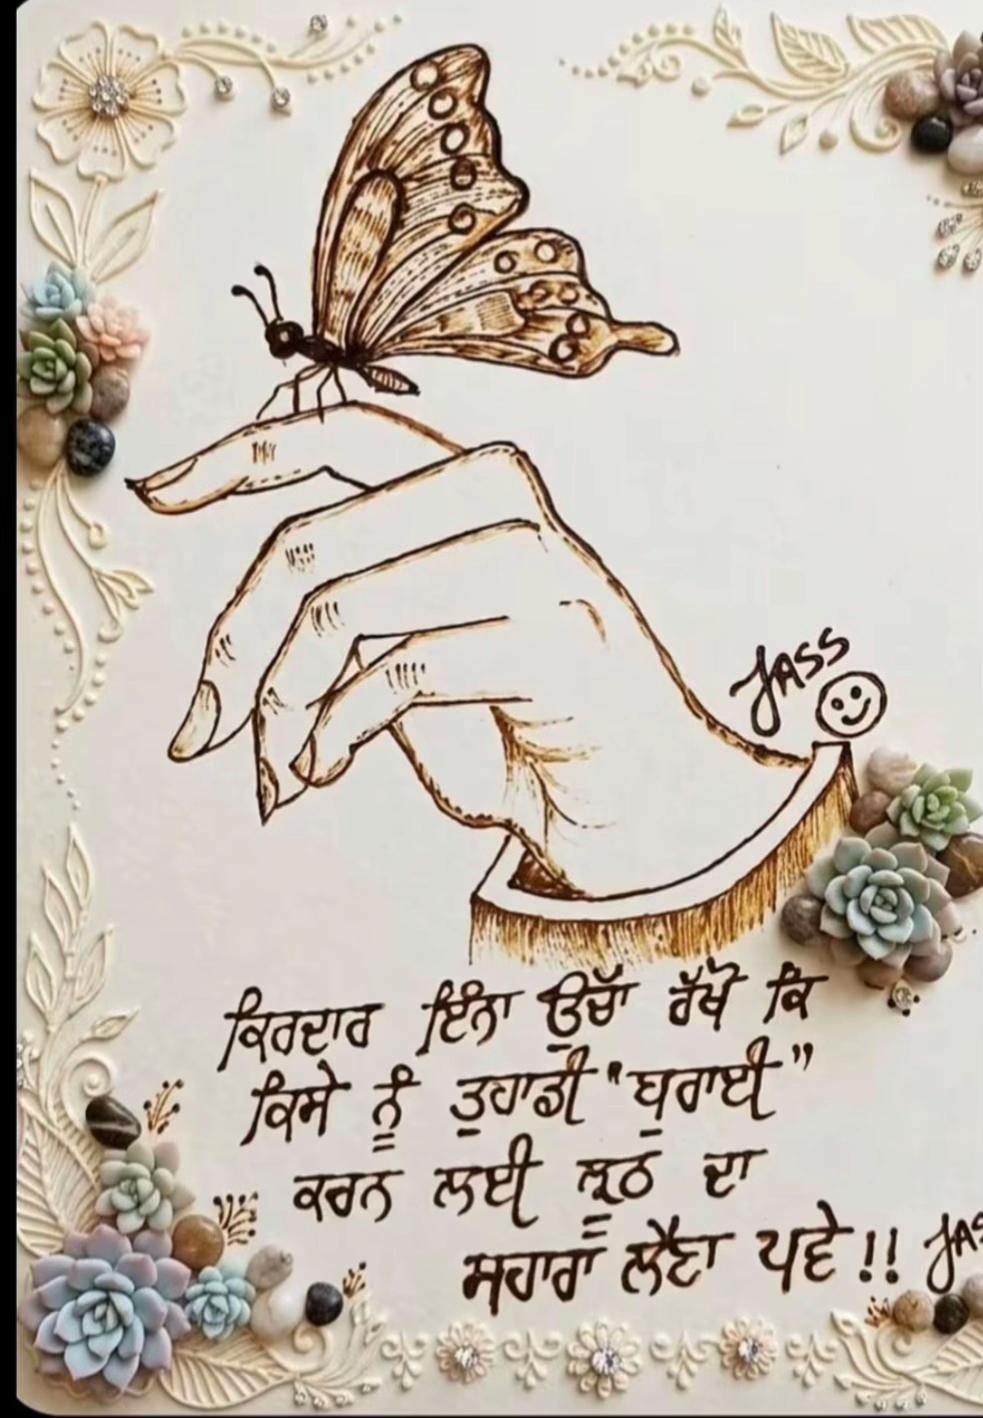 JASS
ਕਿਰਦਾਰ ਇੰਨਾ ਉੱਚਾ ਰੱਖੋ ਕਿ
ਕਿਸੇ ਨੂੰ ਤੁਹਾਡੀ "ਬੁਰਾਈ"
ਕਰਨ ਲਈ ਝੂਠ ਦਾ
ਸਹਾਰਾ ਲੈਣਾ ਪਵੇ !! JAS